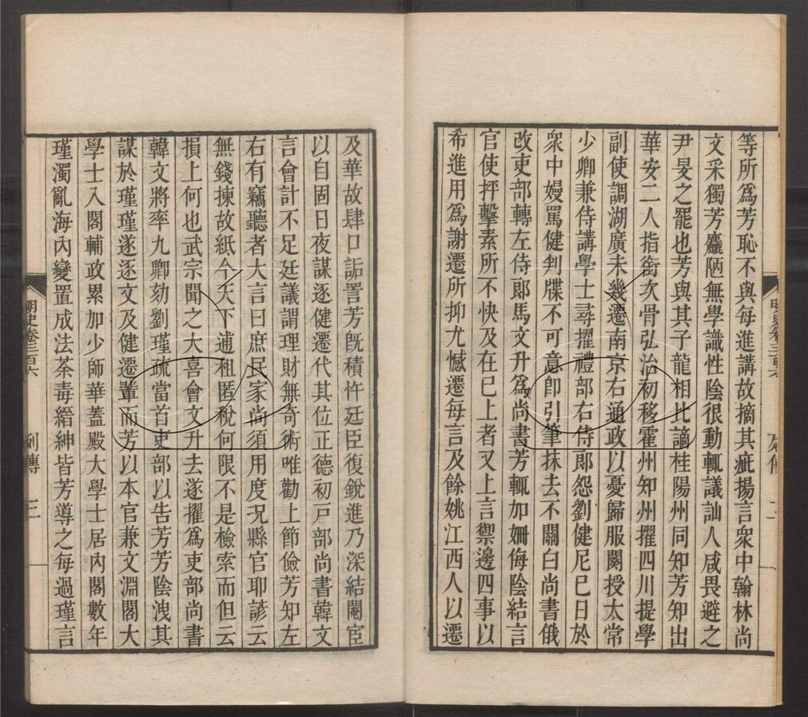 等所爲芳恥不與每進講故摘其疵揚言衆中翰林尚
文采獨芳麤陋無學識性陰很動輒議訕人咸畏避之
尹旻之罷也芳與其子龍相比謫桂陽州同知芳知出
華安二人指銜次骨弘治初移霍州知州擢四川提學
副使調湖廣未幾遷南京右通政以憂歸服闋授太常
少卿兼侍講學士尋擢禮部右侍郎怨劉健尼已日於
衆中嫚罵健判牒不可意卽引筆抹去不關白尚書俄
改吏部轉左侍郎馬文升爲尚書芳輒加姍侮陰結言
官使抨擊素所不快及在已上者又上言禦邊四事以
希進用爲謝遷所抑尤憾遷每言及餘姚江西人以遷
及華故肆口詬詈芳旣積忤廷臣復銳進乃深結閹宦
以自固日夜謀逐健遷代其位正德初戸部尚書韓文
言會計不足廷議謂理財無奇術唯勸上節儉芳知左
右有竊聽者大言曰庶民家尚須用度况縣官耶諺云
無錢揀故紙今天下逋租匿稅何限不是檢索而但云
損上何也武宗聞之大喜會文升去遂擢爲吏部尚書
韓文將率九卿劾劉瑾疏當首吏部以告芳芳陰洩其
謀於瑾瑾遂逐文及健遷輩而芳以本官兼文淵閣大
學士入閣輔政累加少師華蓋殿大學士居內閣數年
瑾濁亂海內變置成法荼毒縉紳皆芳導之每過瑾言
明史卷三百六 列傳 三